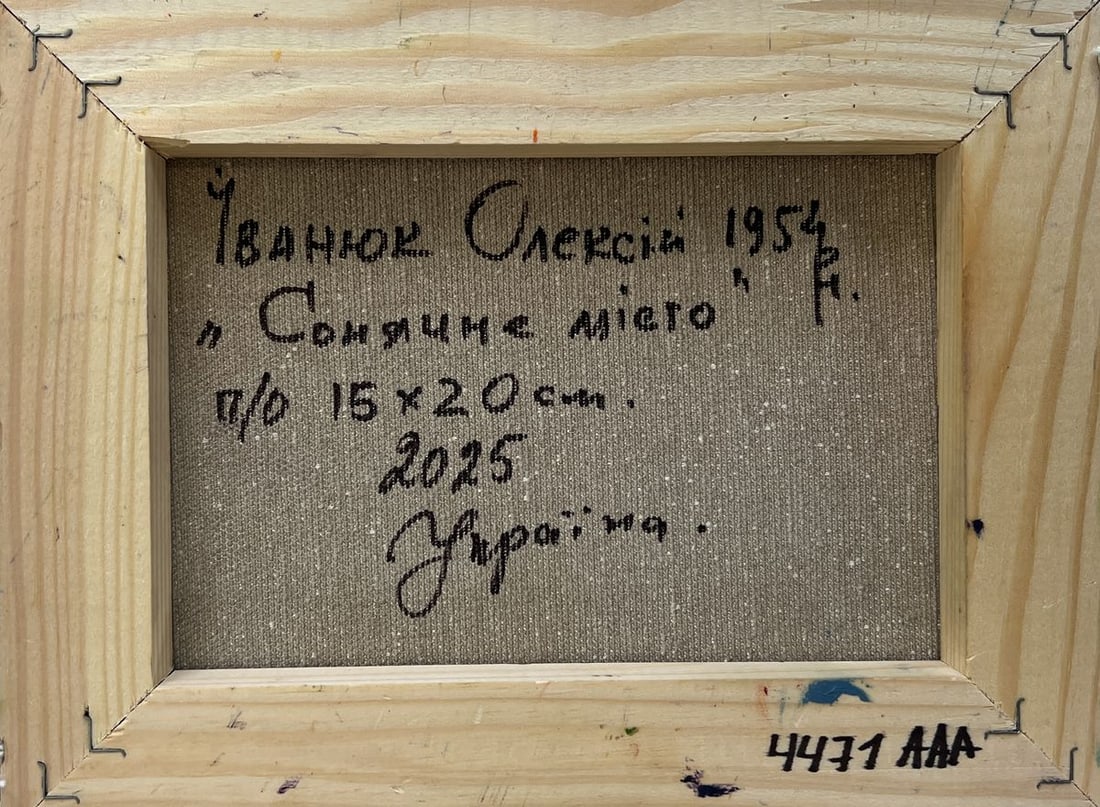 Іванюк Олексій 1954 р.н.
„Сонячне місто"
п/о 15×20 см.
2025
Україна.
4471 AAA